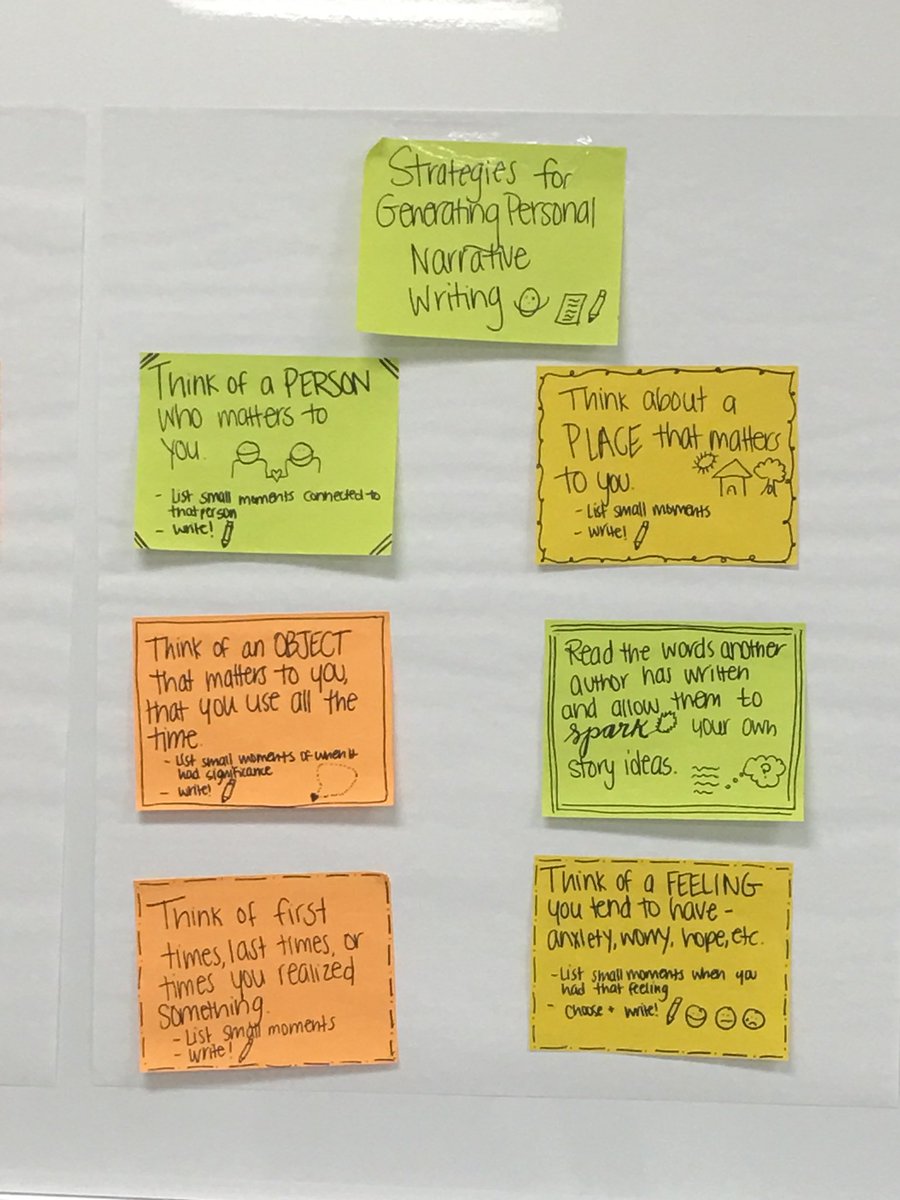 Strategies for
Generating Personal
Narrative
Writing
Think of a PERSON
who matters to
you.
- List small moments connected to
that person
- Write!
Think about a
PLACE that matters
to you.
- List small moments
- Write!
Think of an OBJECT
that matters to you,
that you use all the
time.
- List small moments of when it
had significance
- Write!
Read the words another
author has written
and allow them to
spark your own
story ideas.
?
Think of first
times, last times, or
times you realized
something.
- List small moments
- Write!
Think of a FEELING
you tend to have -
anxiety, worry, hope, etc.
- List small moments when you
had that feeling
- Choose + write!